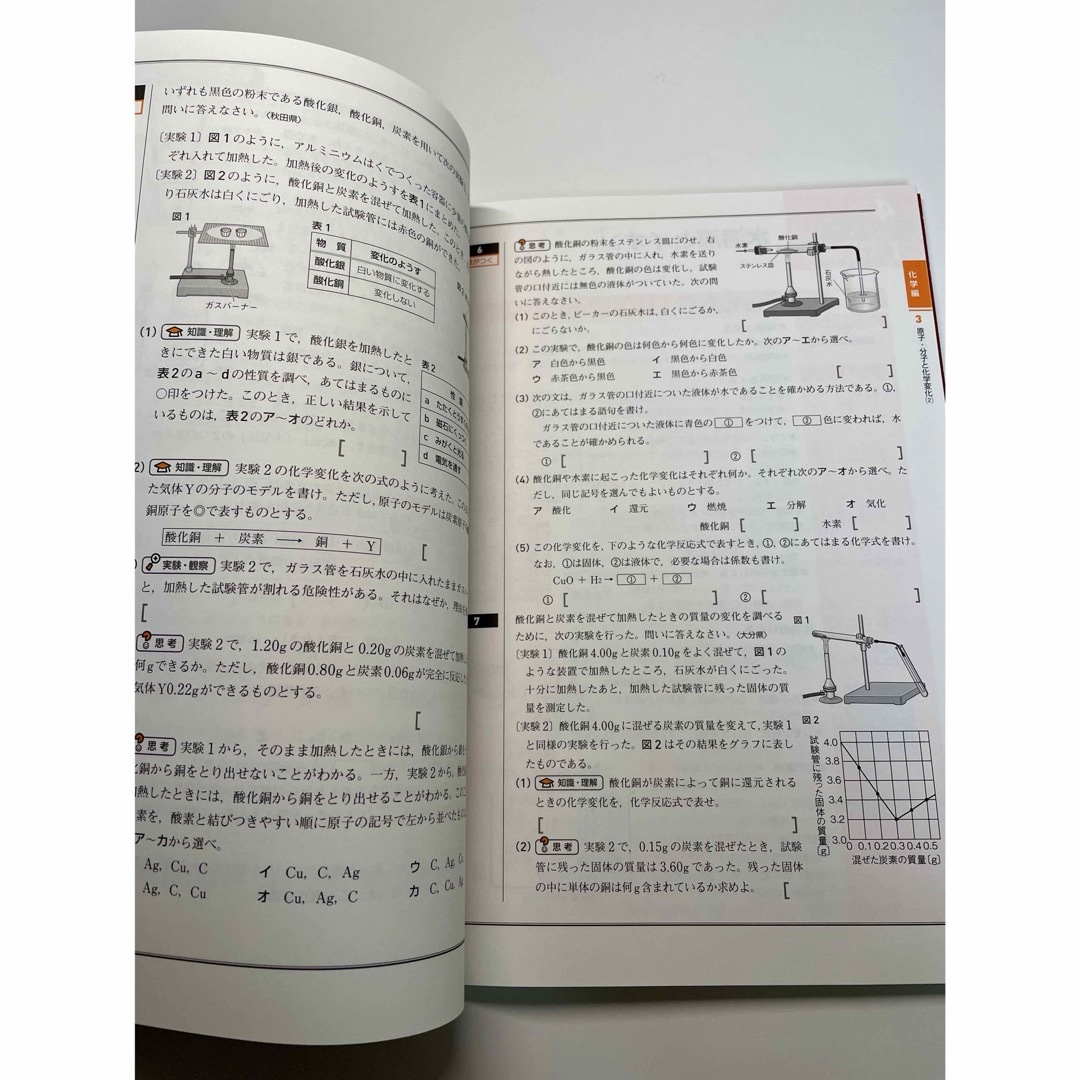 いずれも黒色の粉末である酸化銀，酸化銅，炭素を用いて次の実験
問いに答えなさい。〈秋田県〉
〔実験1〕図1のように，アルミニウムはくでつくった容器に少量
ぞれ入れて加熱した。加熱後の変化のようすを表1にまとめた。
〔実験2〕図2のように，酸化銅と炭素を混ぜて加熱した。このとき
り石灰水は白くにごり，加熱した試験管には赤色の銅ができた。
図1
ガスバーナー
表1
物 質 変化のようす
酸化銀 白い物質に変化する
酸化銅 変化しない
(1) 知識・理解 実験1で，酸化銀を加熱したと
きにできた白い物質は銀である。銀について，
表2のa～dの性質を調べ，あてはまるものに
○印をつけた。このとき，正しい結果を示して
いるものは，表2のア～オのどれか。
[ ]
表2
性 質
a たたくとうす
b 磁石にくっつ
c みがくと光る
d 電気を通す
2) 知識・理解 実験2の化学変化を次の式のように考えた。この
た気体Yの分子のモデルを書け。ただし，原子のモデルは炭素原子
銅原子を◎で表すものとする。
酸化銅 ＋ 炭素 ⟶ 銅 ＋ Y [
) 実験・観察 実験2で，ガラス管を石灰水の中に入れたままガス
と，加熱した試験管が割れる危険性がある。それはなぜか，理由を
[
思考 実験2で，1.20gの酸化銅と0.20gの炭素を混ぜて加熱し
何gできるか。ただし，酸化銅0.80gと炭素0.06gが完全に反応し
気体Y0.22gができるものとする。
[
思考 実験1から，そのまま加熱したときには，酸化銀から銀を
化銅から銅をとり出せないことがわかる。一方，実験2から，酸化
加熱したときには，酸化銅から銅をとり出せることがわかる。この
素を，酸素と結びつきやすい順に原子の記号で左から並べたもの
ア～カから選べ。
Ag, Cu, C イ Cu, C, Ag ウ C, Ag, Cu
Ag, C, Cu オ Cu, Ag, C カ C, Cu, Ag
6
がつく
思考 酸化銅の粉末をステンレス皿にのせ，右
の図のように，ガラス管の中に入れ，水素を送り
ながら熱したところ，酸化銅の色は変化し，試験
管の口付近には無色の液体がついていた。次の問
いに答えなさい。
水素
酸化銅
ステンレス皿
石灰水
(1) このとき，ビーカーの石灰水は，白くにごるか，
にごらないか。 [ ]
(2) この実験で，酸化銅の色は何色から何色に変化したか。次のア～エから選べ。
ア 白色から黒色 イ 黒色から白色
ウ 赤茶色から黒色 エ 黒色から赤茶色 [ ]
(3) 次の文は，ガラス管の口付近についた液体が水であることを確かめる方法である。①，
②にあてはまる語句を書け。
ガラス管の口付近についた液体に青色の ① をつけて， ② 色に変われば，水
であることが確かめられる。
① [ ] ② [ ]
(4) 酸化銅や水素に起こった化学変化はそれぞれ何か。それぞれ次のア～オから選べ。た
だし，同じ記号を選んでもよいものとする。
ア 酸化 イ 還元 ウ 燃焼 エ 分解 オ 気化
酸化銅 [ ] 水素 [ ]
(5) この化学変化を，下のような化学反応式で表すとき，①，②にあてはまる化学式を書け。
なお，①は固体，②は液体で，必要な場合は係数も書け。
CuO ＋ H₂→ ① ＋ ②
① [ ] ② [ ]
7
酸化銅と炭素を混ぜて加熱したときの質量の変化を調べる
ために，次の実験を行った。問いに答えなさい。〈大分県〉
〔実験1〕酸化銅4.00gと炭素0.10gをよく混ぜて，図1の
ような装置で加熱したところ，石灰水が白くにごった。
十分に加熱したあと，加熱した試験管に残った固体の質
量を測定した。
〔実験2〕酸化銅4.00gに混ぜる炭素の質量を変えて，実験1
と同様の実験を行った。図2はその結果をグラフに表し
たものである。
(1) 知識・理解 酸化銅が炭素によって銅に還元される
ときの化学変化を，化学反応式で表せ。
[ ]
(2) 思考 実験2で，0.15gの炭素を混ぜたとき，試験
管に残った固体の質量は3.60gであった。残った固体
の中に単体の銅は何g含まれているか求めよ。 [
図1
図2
試験管に残った固体の質量〔g〕
4.0
3.8
3.6
3.4
3.2
3.0
0 0.1 0.2 0.3 0.4 0.5
混ぜた炭素の質量〔g〕
化学編
3
原子・分子と化学変化(2)